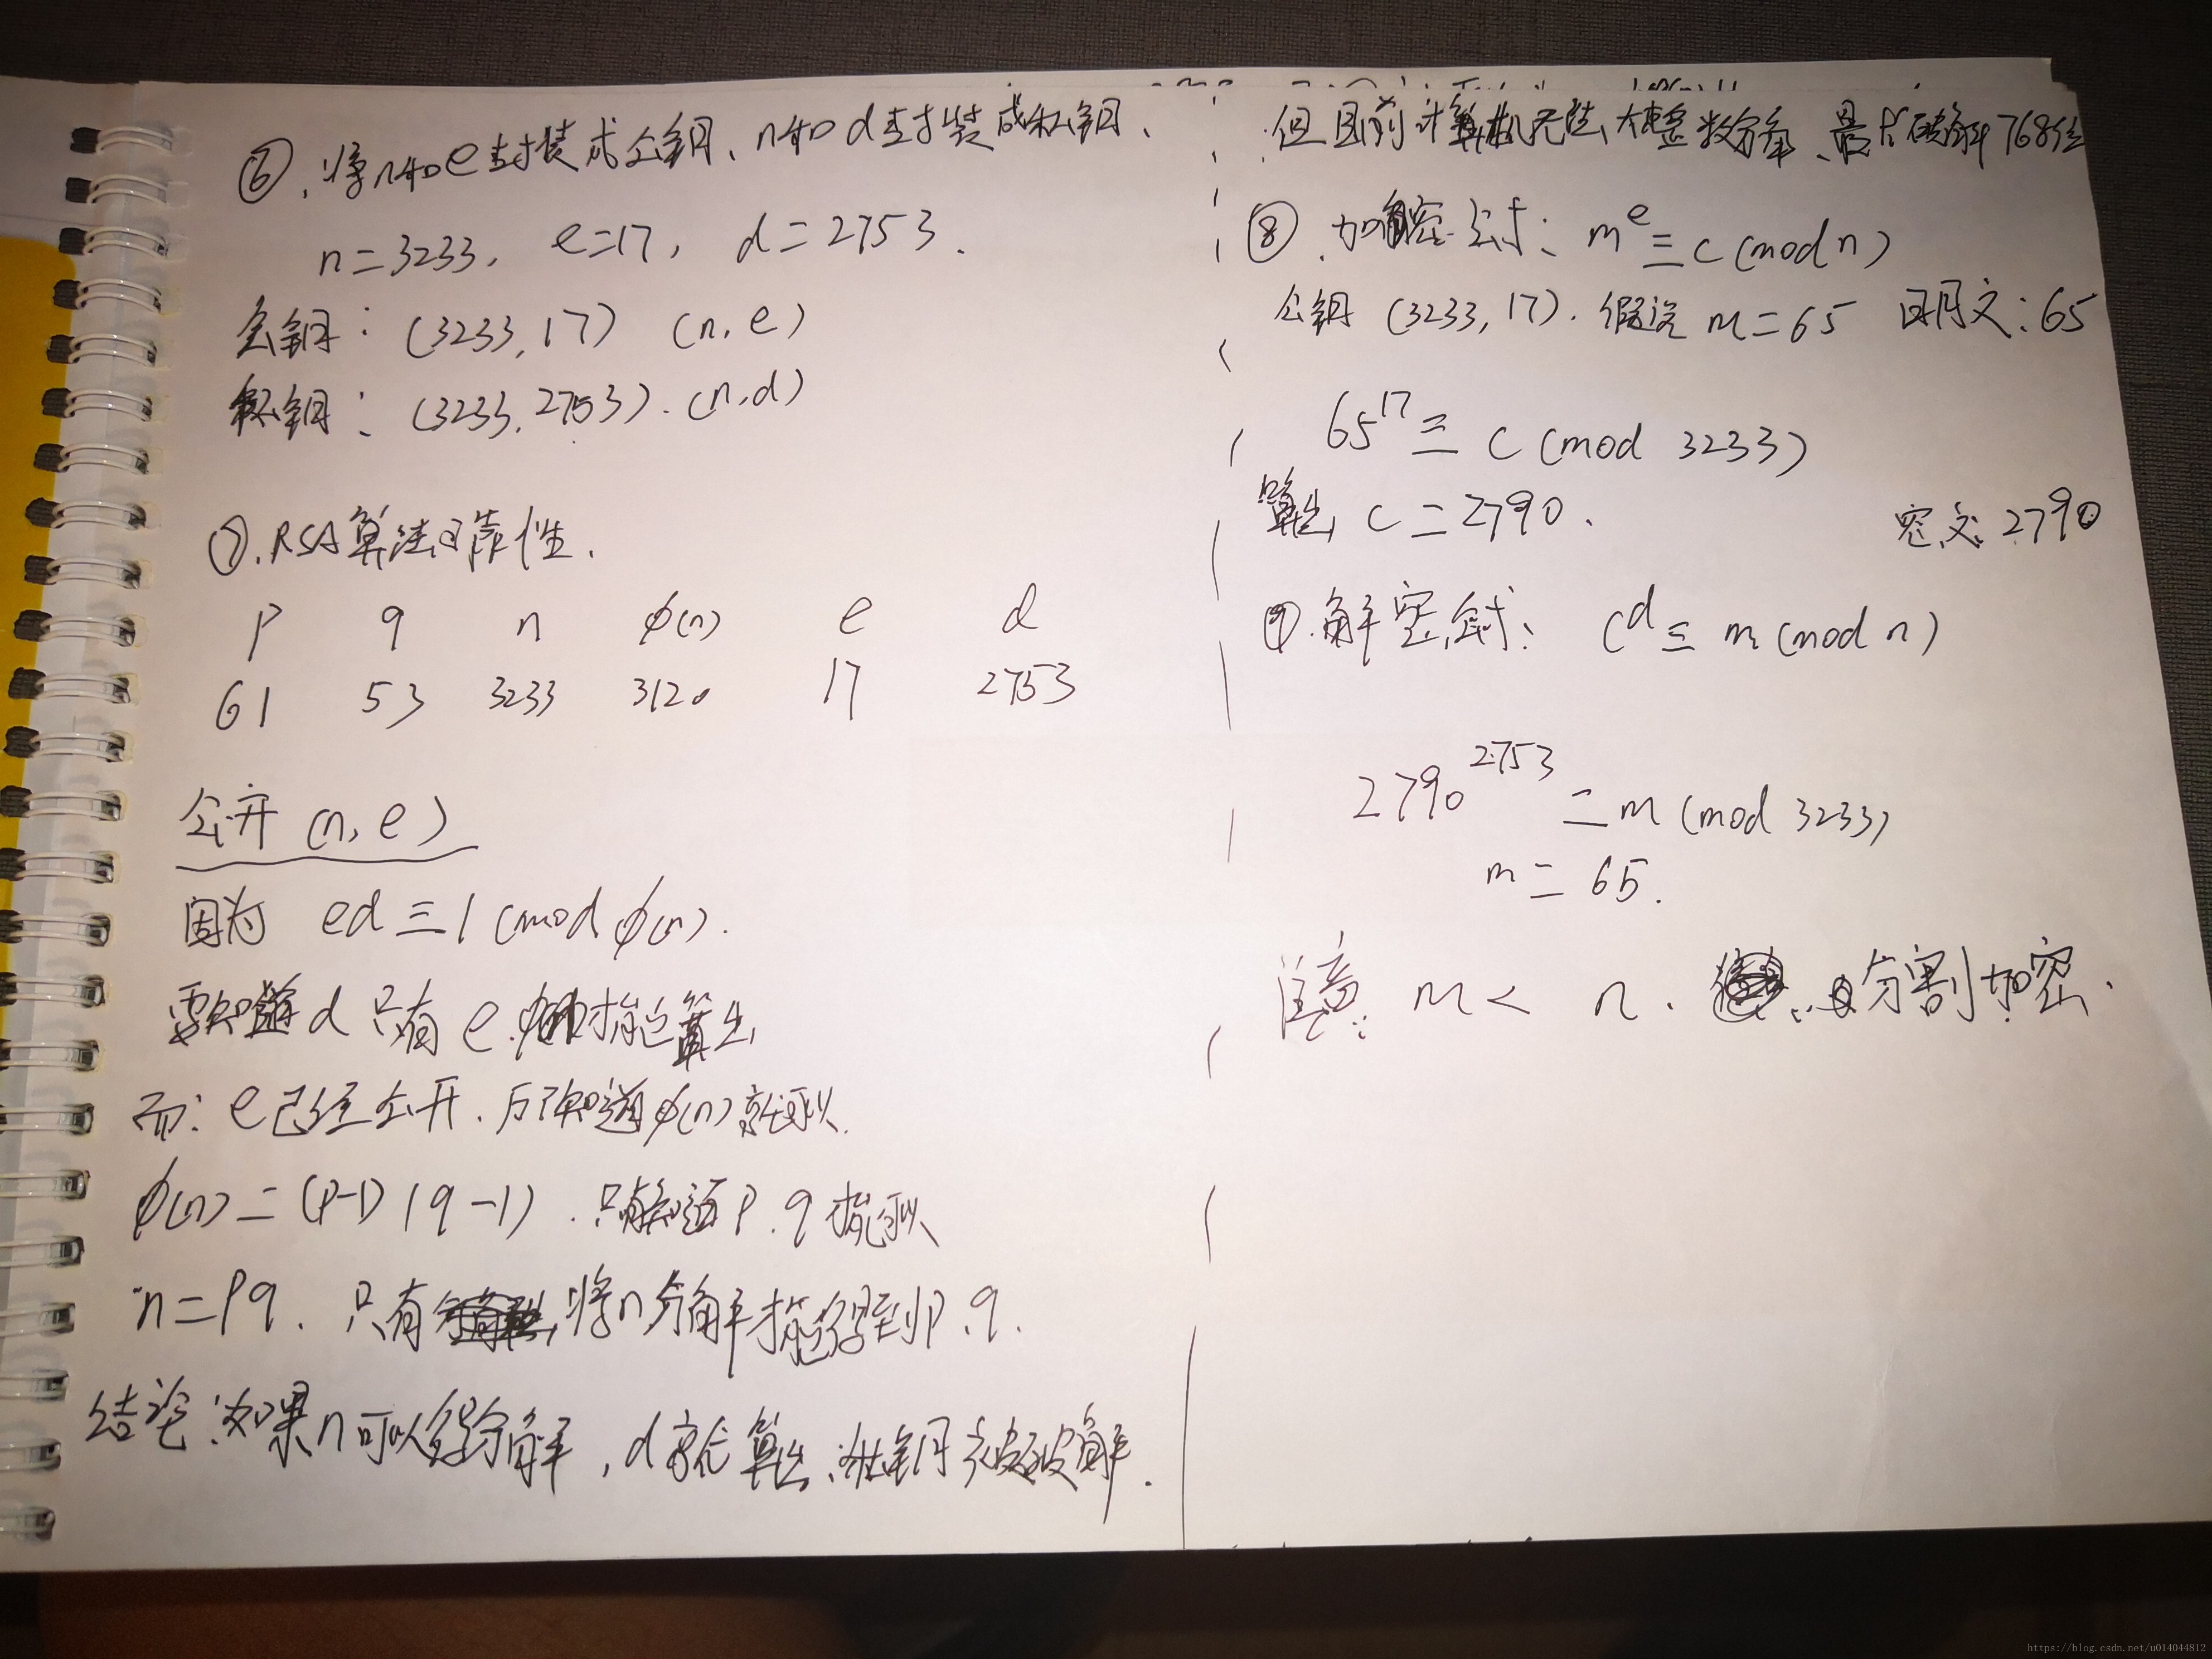 ⑥、将n和e封装成公钥、n和d封装成私钥、
n=3233, e=17, d=2753.
公钥: (3233,17) (n,e)
私钥: (3233,2753). (n,d)
⑦.RSA算法可靠性.
p q n φ(n) e d
61 53 3233 3120 17 2753
公开 (n,e)
因为 ed≡1 (mod φ(n).
要知道d只有e.φ(n)才能算出
而:e已经公开.只有知道φ(n)就可以.
φ(n)=(p-1)(q-1).只有知道p.q才能可以
n=pq.只有将n分解才能得到p.q.
结论:如果n可以分解,d就能算出、私钥被破解.
但目前计算机无法大整数分解、最大破解768位
⑧、加密公式: m^e≡c (mod n)
公钥 (3233,17).假设 m=65 明文:65
65^17≡c (mod 3233)
算出 c=2790. 密文:2790
⑨.解密公式: c^d≡m (mod n)
2790^2753=m (mod 3233)
m=65.
注意: m< n. 分割加密.
https://blog.csdn.net/u014044812